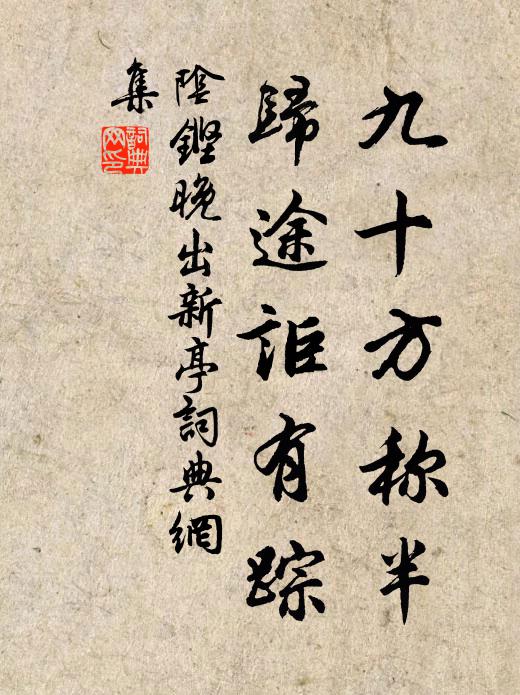 九十方称半
歸途詎有踪
陰鏗晚出新亭詞典網
集
詞典
网印